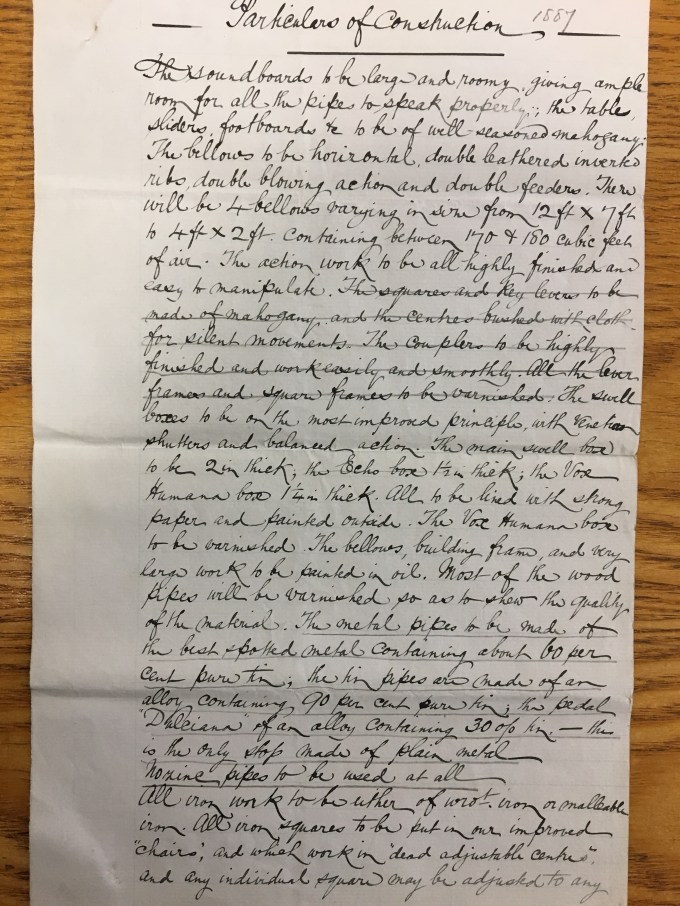 Particulars of Construction 1887
The soundboards to be large and roomy, giving ample
room for all the pipes to speak properly; the tables,
sliders, footboards &c to be of well seasoned mahogany.
The bellows to be horizontal, double leathered inverted
ribs, double blowing action and double feeders. There
will be 4 bellows varying in size from 12 ft x 7 ft
to 4 ft x 2 ft. containing between 170 & 180 cubic feet
of air. The action work to be all highly finished and
easy to manipulate. The squares and key levers to be
made of mahogany and the centres bushed with cloth
for silent movements. The couplers to be highly
finished and work easily and smoothly. All the lever
frames and square frames to be varnished. The swell
boxes to be on the most improved principle, with venetian
shutters and balanced action. The main swell box
to be 2 in thick; the Echo box 1½ in thick; the Vox
Humana box 1¼ in thick. All to be lined with strong
paper and painted outside. The Vox Humana box
to be varnished. The bellows, building frame, and very
large work to be painted in oil. Most of the wood
pipes will be varnished so as to shew the quality
of the material. The metal pipes to be made of
the best spotted metal containing about 60 per
cent pure tin; the tin pipes are made of an
alloy containing 90 per cent pure tin; the pedal
"Dulciana" of an alloy containing 30 o/o tin. — this
is the only stop made of plain metal
No zinc pipes to be used at all
All iron work to be either of wrot. iron or malleable
iron. All iron squares to be put in our improved
"chairs", and which work in "dead adjustable centres".
and any individual square may be adjusted to any